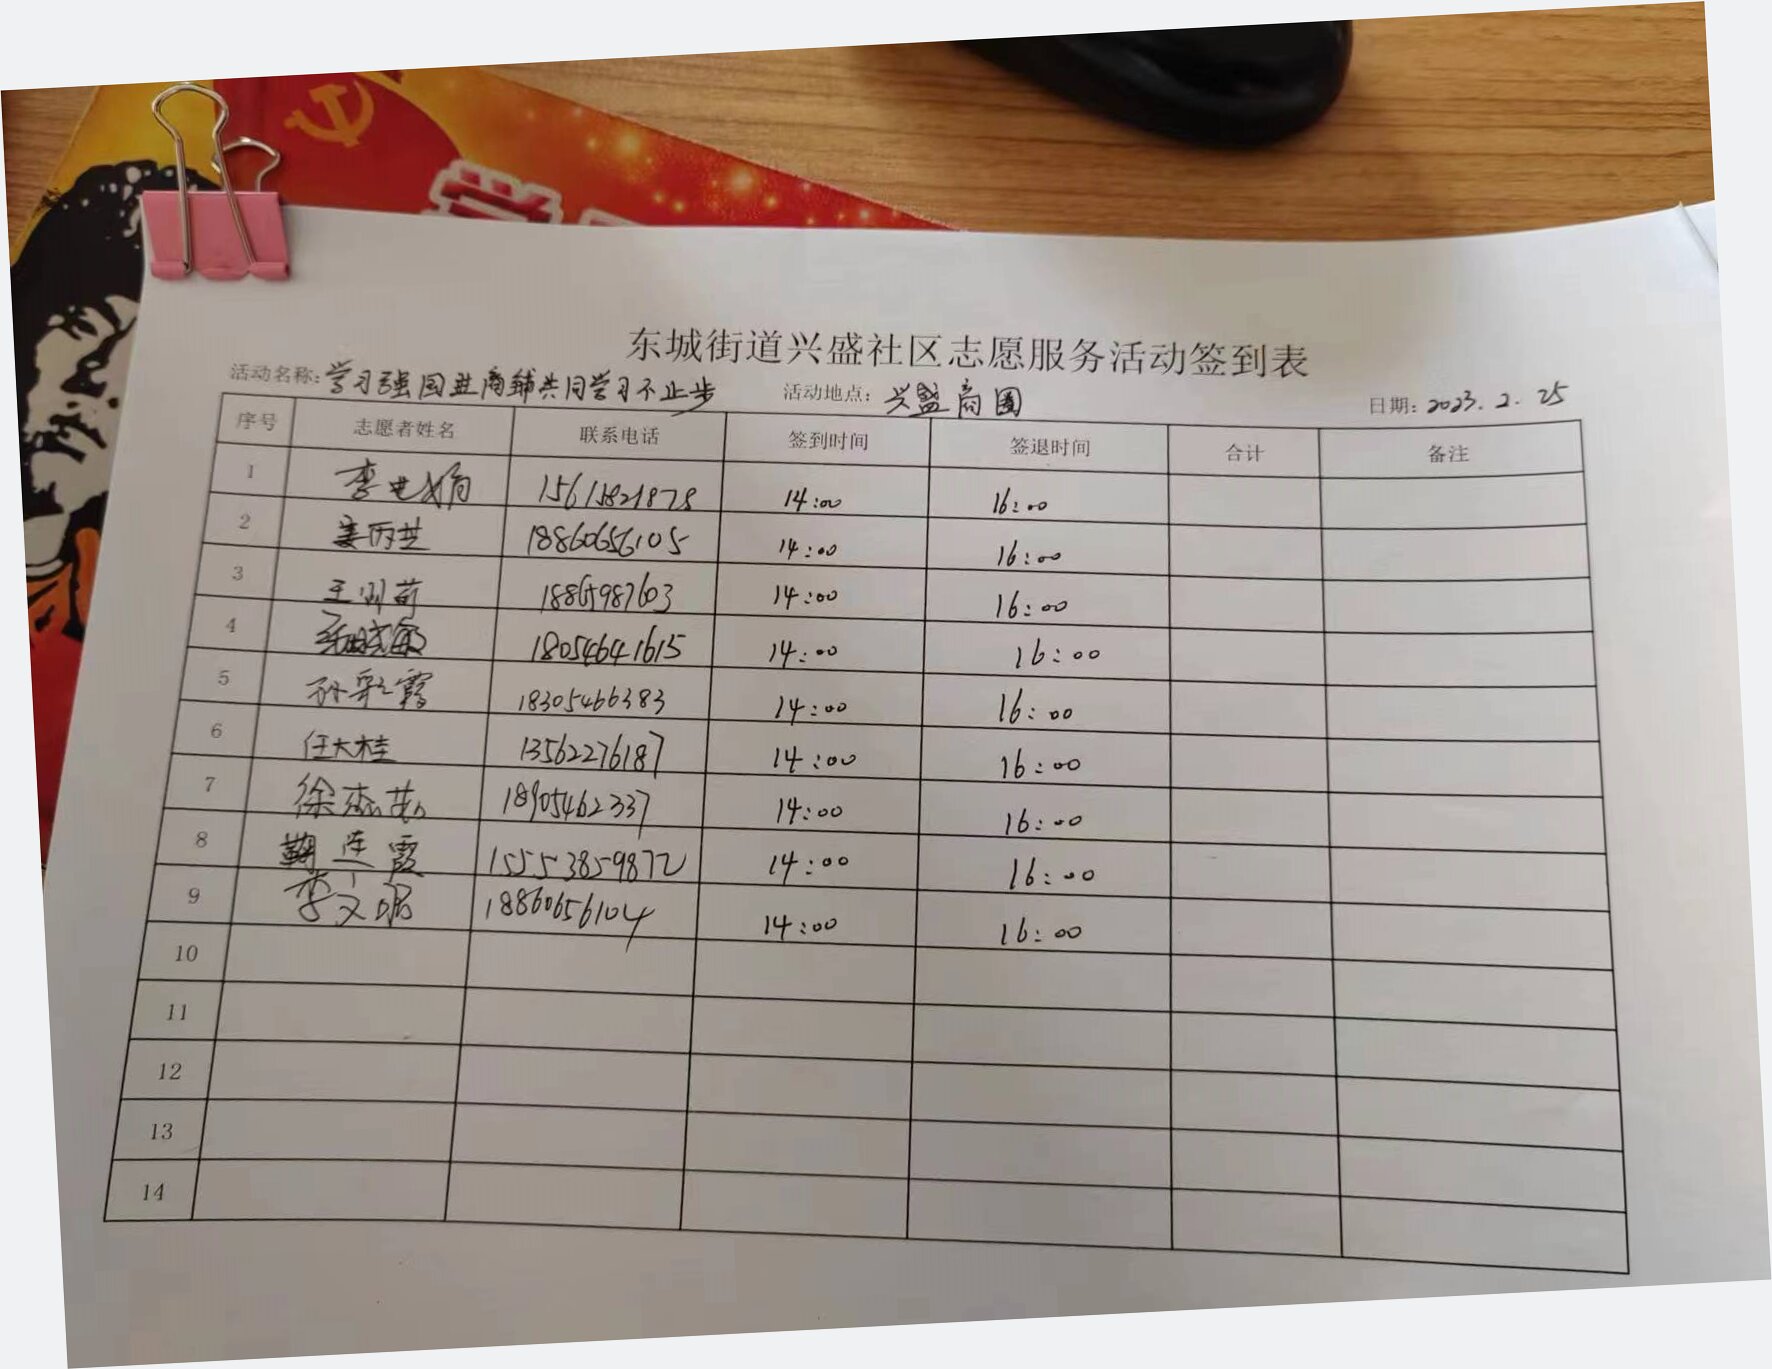 东城街道兴盛社区志愿服务活动签到表
活动名称:学习强国进商铺共同学习不止步 活动地点:兴盛商圈 日期:2023.2.25
序号 志愿者姓名 联系电话 签到时间 签退时间 合计 备注
1 李 15615821878 14:00 16:00
2 姜丙芸 18860656105 14:00 16:00
3 王 18865987603 14:00 16:00
4 18054641615 14:00 16:00
5 孙彩霞 18305466383 14:00 16:00
6 任大桂 13562276187 14:00 16:00
7 徐 18905462337 14:00 16:00
8 鞠连霞 15553859872 14:00 16:00
9 李文娟 18860656104 14:00 16:00
10
11
12
13
14